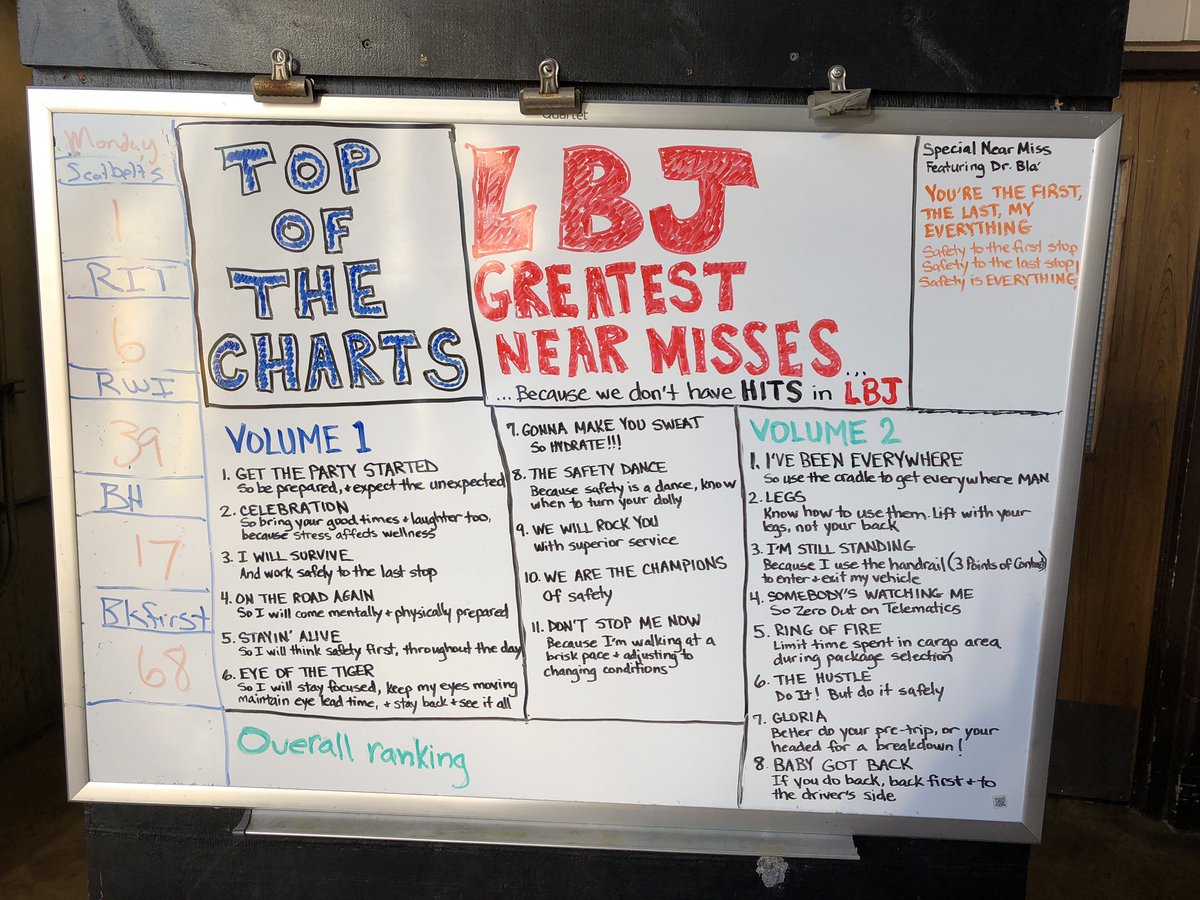 Quartet
Monday
Seatbelts
1
RIT
6
RWI
39
BH
17
Bkfirst
68
TOP
OF
THE
CHARTS
LBJ
GREATEST
NEAR MISSES...
...Because we don't have HITS in LBJ
Special Near Miss
Featuring Dr. Bla'
YOU'RE THE FIRST,
THE LAST, MY
EVERYTHING
Safety to the first stop
Safety to the last stop!
Safety is EVERYTHING!
VOLUME 1
1. GET THE PARTY STARTED
So be prepared, + expect the unexpected
2. CELEBRATION
So bring your good times + laughter too,
because stress affects wellness
3. I WILL SURVIVE
And work safely to the last stop
4. ON THE ROAD AGAIN
So I will come mentally + physically prepared
5. STAYIN' ALIVE
So I will think safety first, throughout the day
6. EYE OF THE TIGER
So I will stay focused, keep my eyes moving
maintain eye lead time, + stay back + see it all
7. GONNA MAKE YOU SWEAT
So HYDRATE!!!
8. THE SAFETY DANCE
Because safety is a dance, know
when to turn your dolly
9. WE WILL ROCK YOU
With superior service
10. WE ARE THE CHAMPIONS
Of safety
11. DON'T STOP ME NOW
Because I'm walking at a
brisk pace + adjusting to
changing conditions
VOLUME 2
1. I'VE BEEN EVERYWHERE
So use the cradle to get everywhere MAN
2. LEGS
Know how to use them. Lift with your
legs, not your back
3. I'M STILL STANDING
Because I use the handrail (3 Points of Contact)
to enter + exit my vehicle
4. SOMEBODY'S WATCHING ME
So Zero Out on Telematics
5. RING OF FIRE
Limit time spent in cargo area
during package selection
6. THE HUSTLE
Do It! But do it safely
7. GLORIA
Better do your pre-trip, or your
headed for a breakdown!
8. BABY GOT BACK
If you do back, back first + to
the driver's side
Overall ranking